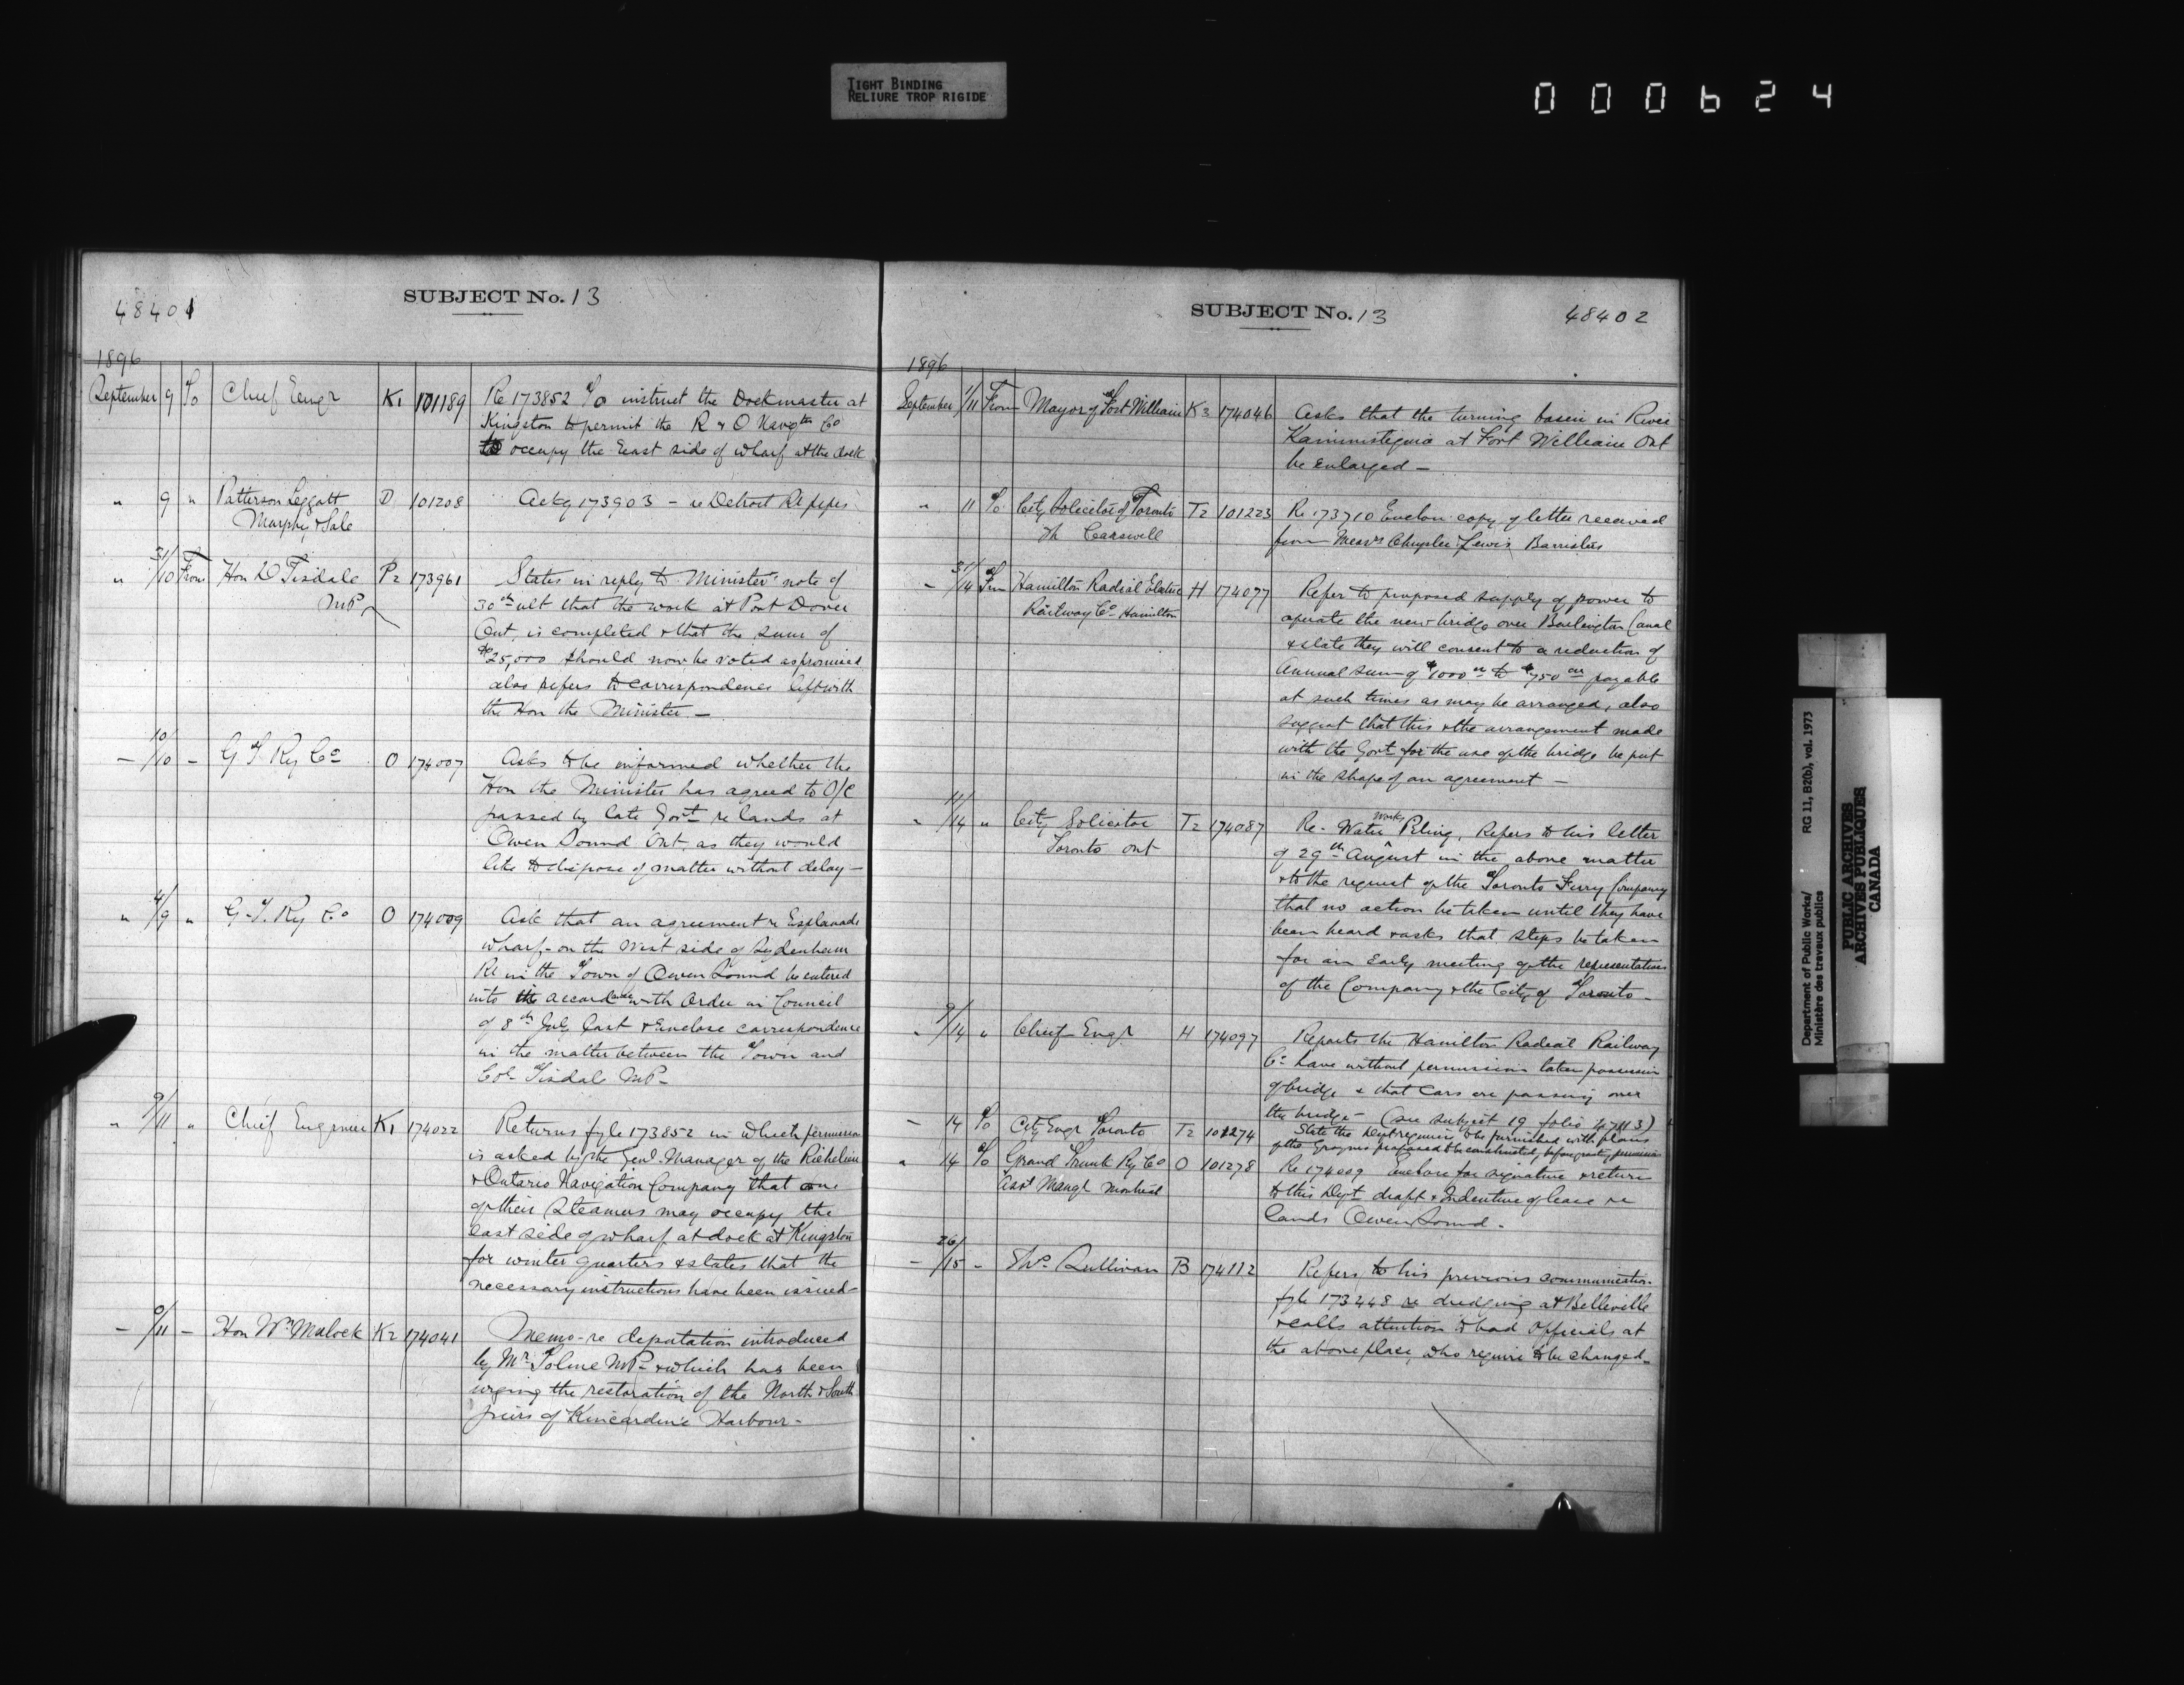 TIGHT BINDING
RELIURE TROP RIGIDE
000624
48401
SUBJECT No. 13
1896
September 9 To Chief Engr K1 101189 Re 173852 To instruct the Dockmaster at
Kingston to permit the R & O Navgtn Co
to occupy the East side of wharf at the dock
" 9 " Patterson Leggatt D 101208 Ackg 173903 - re Detroit RR pipes
Murphy & Sale
" 31/10 From Hon D Tisdale P2 173961 States in reply to Minister' note of
MP
30th ult that the work at Port Dover
Ont. is completed & that the sum of
$25,000 should now be voted as promised
also refers to correspondence left with
the Hon the Minister -
- 10/10 - G T Ry Co O 174007 Asks to be informed whether the
Hon the Minister has agreed to O/C
passed by late Govt re lands at
Owen Sound Ont. as they would
like to dispose of matter without delay -
" 4/9 " G. T. Ry Co O 174009 Ask that an agreement re Esplanade
wharf - on the West side of Sydenham
Rr in the Town of Owen Sound be entered
into in accordance with Order in Council
of 8th July last & Enclose correspondence
in the matter between the Town and
Col. Tisdale MP -
" 9/11 " Chief Engineer K1 174022 Returns fyle 173852 in which permission
is asked by the Genl. Manager of the Richelieu
& Ontario Navigation Company that one
of their Steamers may occupy the
east side of wharf at dock at Kingston
for winter quarters & states that the
necessary instructions have been issued -
- 9/11 - Hon Wm Mulock K2 174041 Memo - re deputation introduced
by Mr. Tolmie MP - & which has been
urging the restoration of the North & South
piers of Kincardine Harbour -
SUBJECT No. 13
48402
1896
September 1/11 From Mayor of Fort William K3 174046 Asks that the turning basin in River
Kaministiquia at Fort William Ont
be Enlarged -
" 11 To City Solicitor of Toronto T2 101223 Re 173710 Enclon copy of letter received
Th Caswell
from Messrs Chrysler & Lewis Barristers
- 31/14 From Hamilton Radial Electric H 174077 Refer to proposed supply of power to
Railway Co Hamilton
operate the new bridge over Burlington Canal
& state they will consent to a reduction of
Annual sum of $1000 00 to $750 00 payable
at such times as may be arranged, also
suggest that this & the arrangement made
with the Govt for the use of the bridge be put
in the shape of an agreement -
" 11/14 " City Solicitor T2 174087 Re - Water works Piling. Refers to his letter
Toronto Ont
of 29th August in the above matter
& to the request of the Toronto Ferry Company
that no action be taken until they have
been heard & asks that steps be taken
for an Early meeting of the representatives
of the Company & the City of Toronto -
" 9/14 " Chief Engr H 174097 Reports the Hamilton Radial Railway
Co have without permission taken possession
of bridge & that Cars are passing over
the bridge - (see subject 19 folio 47113)
- 14 To City Engr Toronto T2 101274 State the Dept requires to be furnished with plans
of the Groynes proposed to be constructed, before granting permission
" 14 To Grand Trunk Ry Co O 101278 Re 174009 Enclose for signature & return
Asst Mangr Montreal
to this Dept draft & Indenture of lease re
lands Owen Sound.
- 26/15 - Thos. Sullivan B 174112 Refers to his previous communication
fyle 173248 re dredging at Belleville
& calls attention to bad Officials at
the above place, who require to be changed -
Department of Public Works/
RG 11, B2(b), vol. 1973
Ministère des travaux publics
PUBLIC ARCHIVES
ARCHIVES PUBLIQUES
CANADA